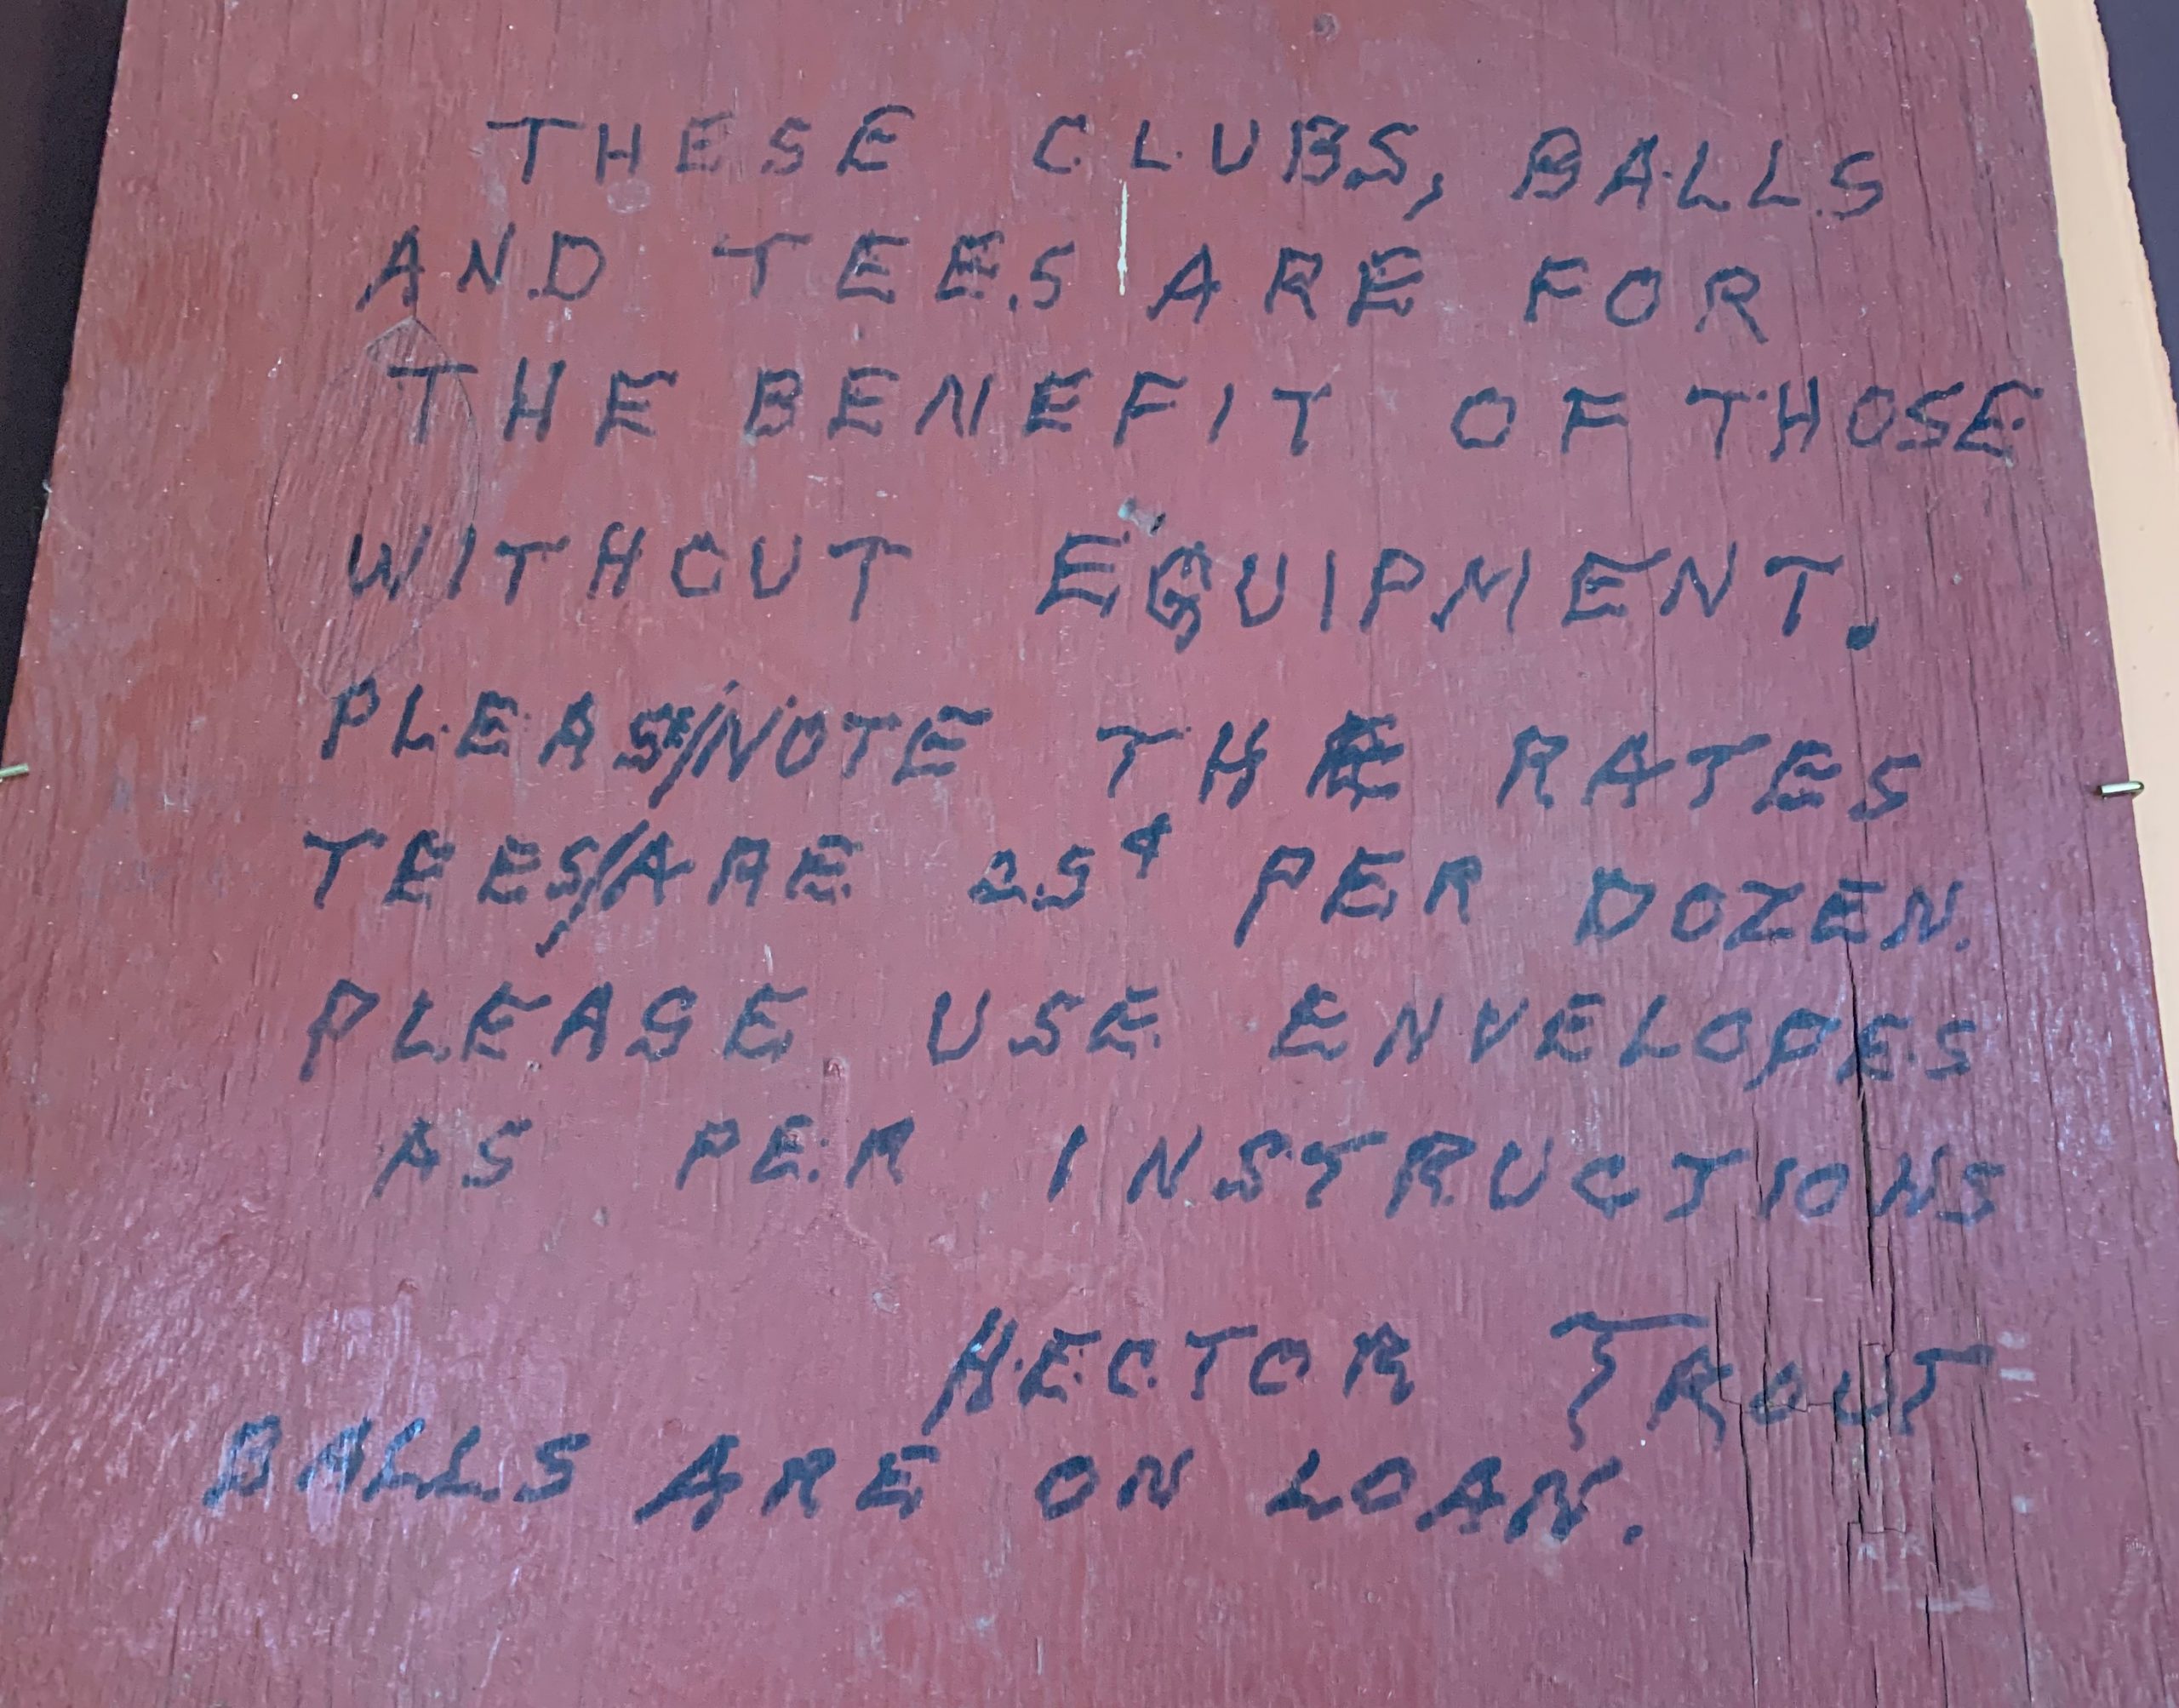 THESE CLUBS, BALLS
AND TEES ARE FOR
THE BENEFIT OF THOSE
WITHOUT EQUIPMENT.
PLEASE/NOTE THE RATES
TEES/ARE 25¢ PER DOZEN.
PLEASE USE ENVELOPES
AS PER INSTRUCTIONS
HECTOR TROUT
BALLS ARE ON LOAN.